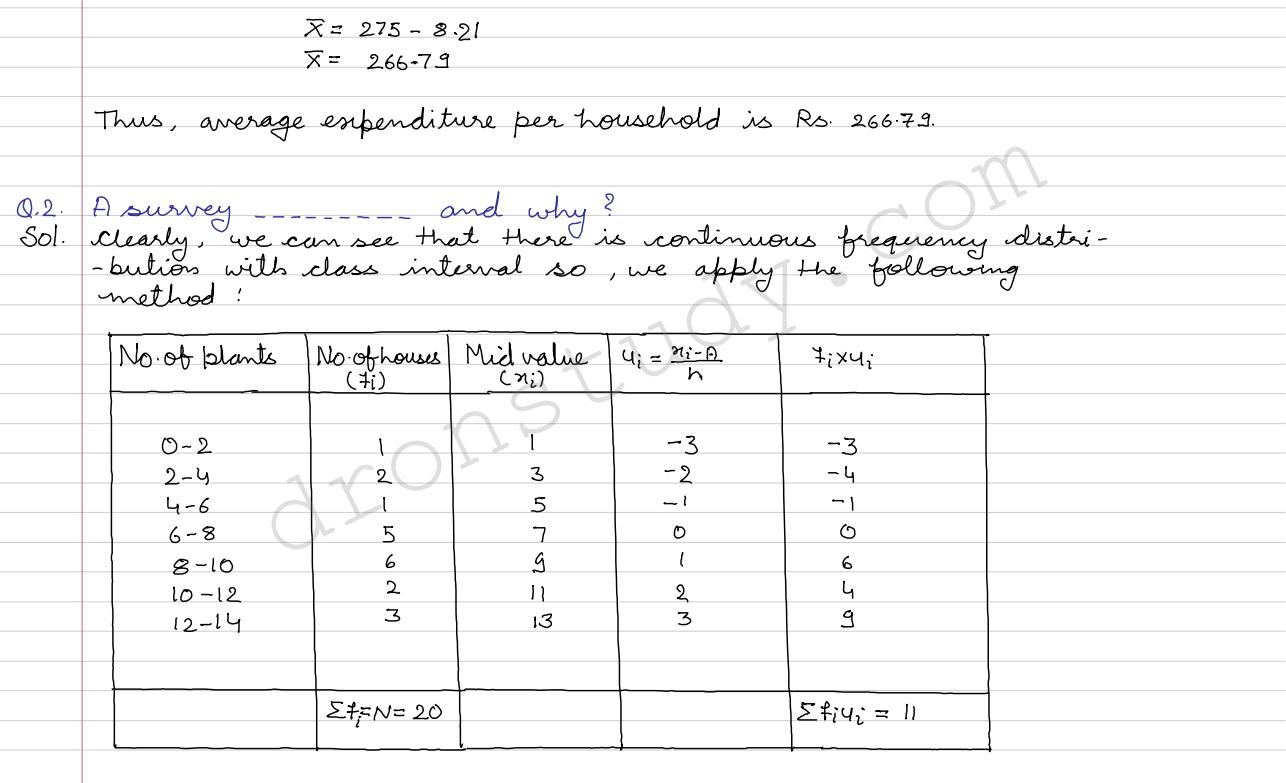 X̄ = 275 - 8.21
X̄ = 266.79
Thus, average expenditure per household is Rs. 266.79.
Q.2. A survey --------- and why?
Sol. Clearly, we can see that there is continuous frequency distri-
-bution with class interval so, we apply the following
method :
No. of plants No. of houses (fi) Mid value (xi) ui = xi-A/h fi×ui
0-2 1 1 -3 -3
2-4 2 3 -2 -4
4-6 1 5 -1 -1
6-8 5 7 0 0
8-10 6 9 1 6
10-12 2 11 2 4
12-14 3 13 3 9
Σfi=N=20 Σfiui = 11
dronstudy.com